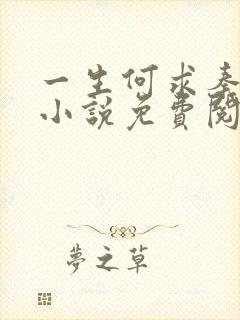 一生何求秦
小說免費閱
夢之草